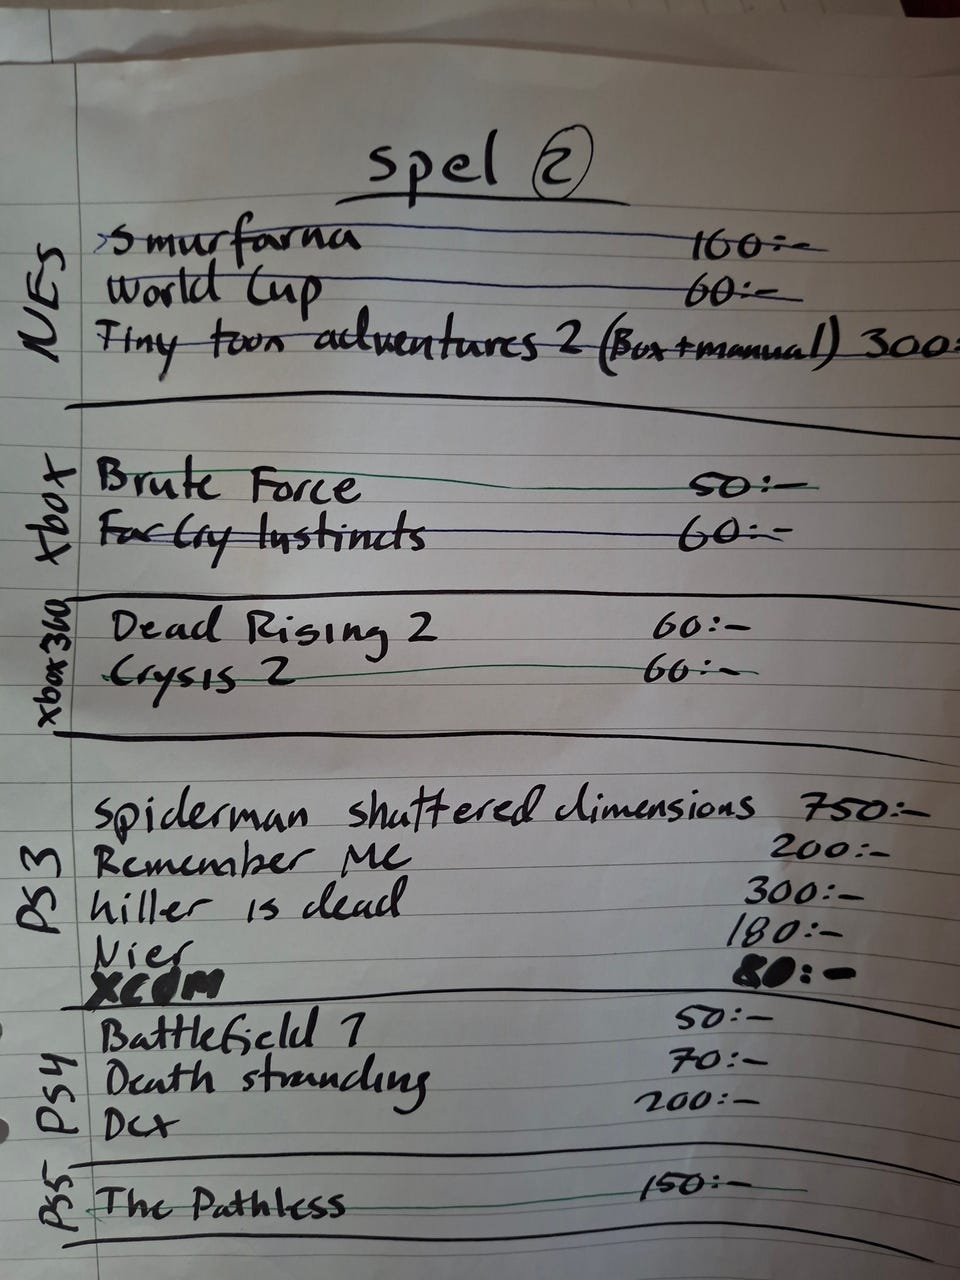 Spel 2
NES
Smurfarna 160:-
World Cup 60:-
Tiny toon adventures 2 (Box+manual) 300:
Xbox
Brute Force 50:-
Far Cry Instincts 60:-
Xbox360
Dead Rising 2 60:-
Crysis 2 60:-
PS3
Spiderman shattered dimensions 750:-
Remember Me 200:-
killer is dead 300:-
Nier 180:-
XCOM 80:-
PS4
Battlefield 1 50:-
Death stranding 70:-
Dex 200:-
PS5
The Pathless 150:-